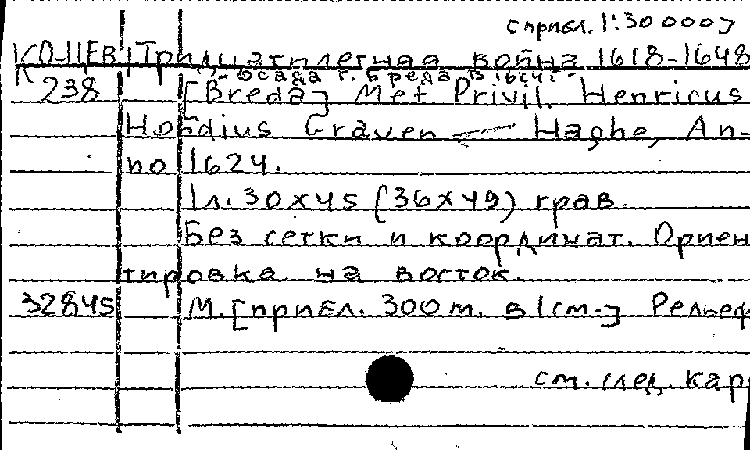 [прибл. 1:30 000]
К 0-11ЕВ Тридцатилетняя война 1618-1648
- Осада г. Бреда в 1624г. -
К 238 [Breda] Met Privil. Henricus
Hondius Graven — Haghe, An-
no 1624.
1л. 30x45 (36x49) грав.
Без сетки и координат. Ориен
тировка на восток.
32845 М. [прибл. 300 м. в 1 см.] Рельеф
см. след. кар